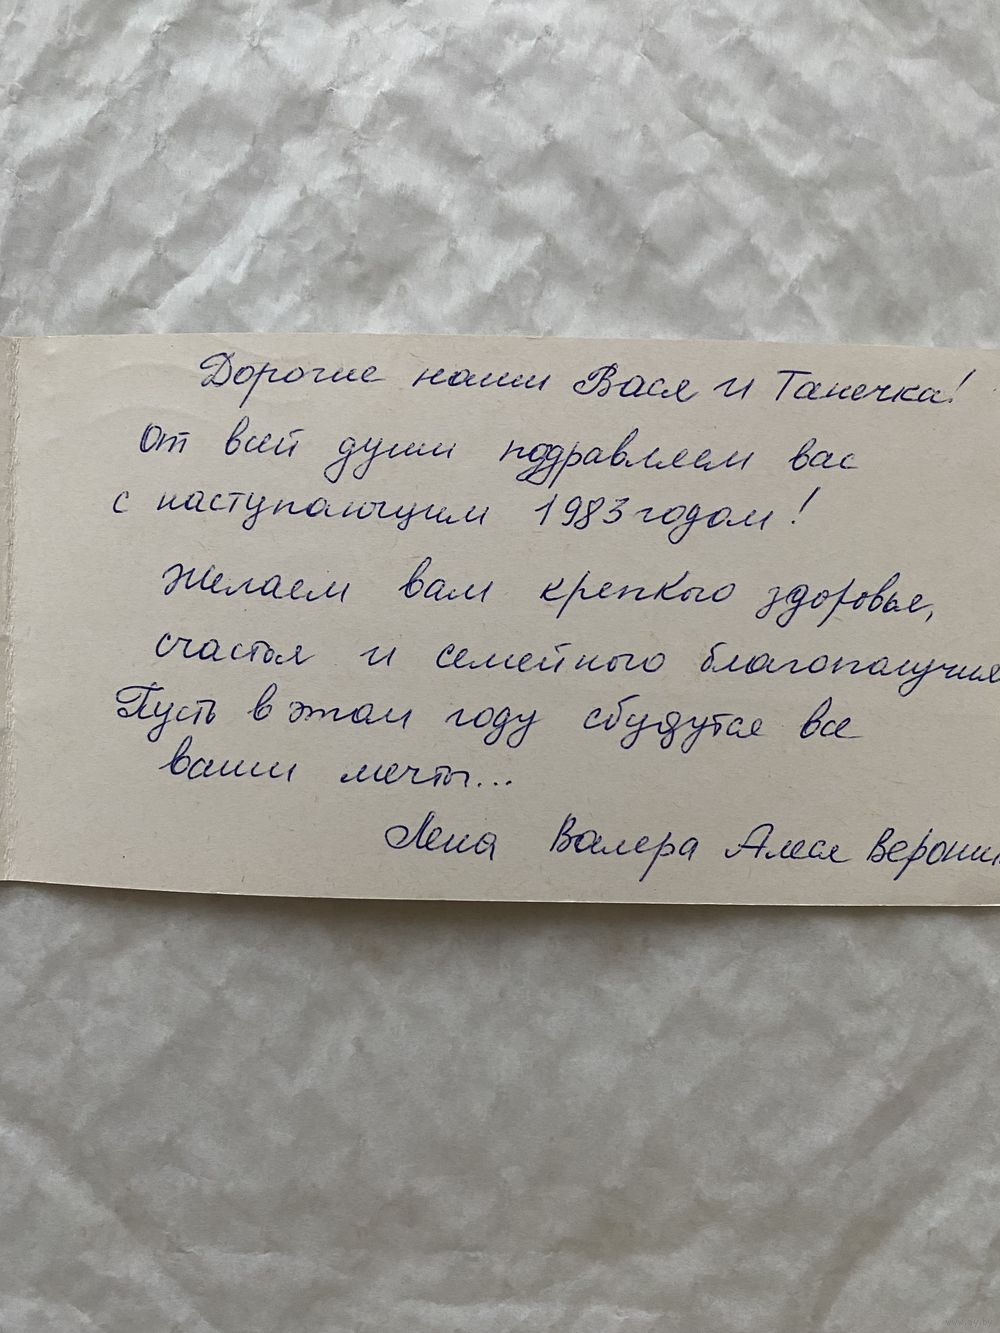 Дорогие наши Вася и Танечка!
От всей души поздравляем вас
с наступающим 1983 годом!
Желаем вам крепкого здоровья,
счастья и семейного благополучия
Пусть в этом году сбудутся все
ваши мечты...
Лена Валера Алеся Верони
www.ay.by